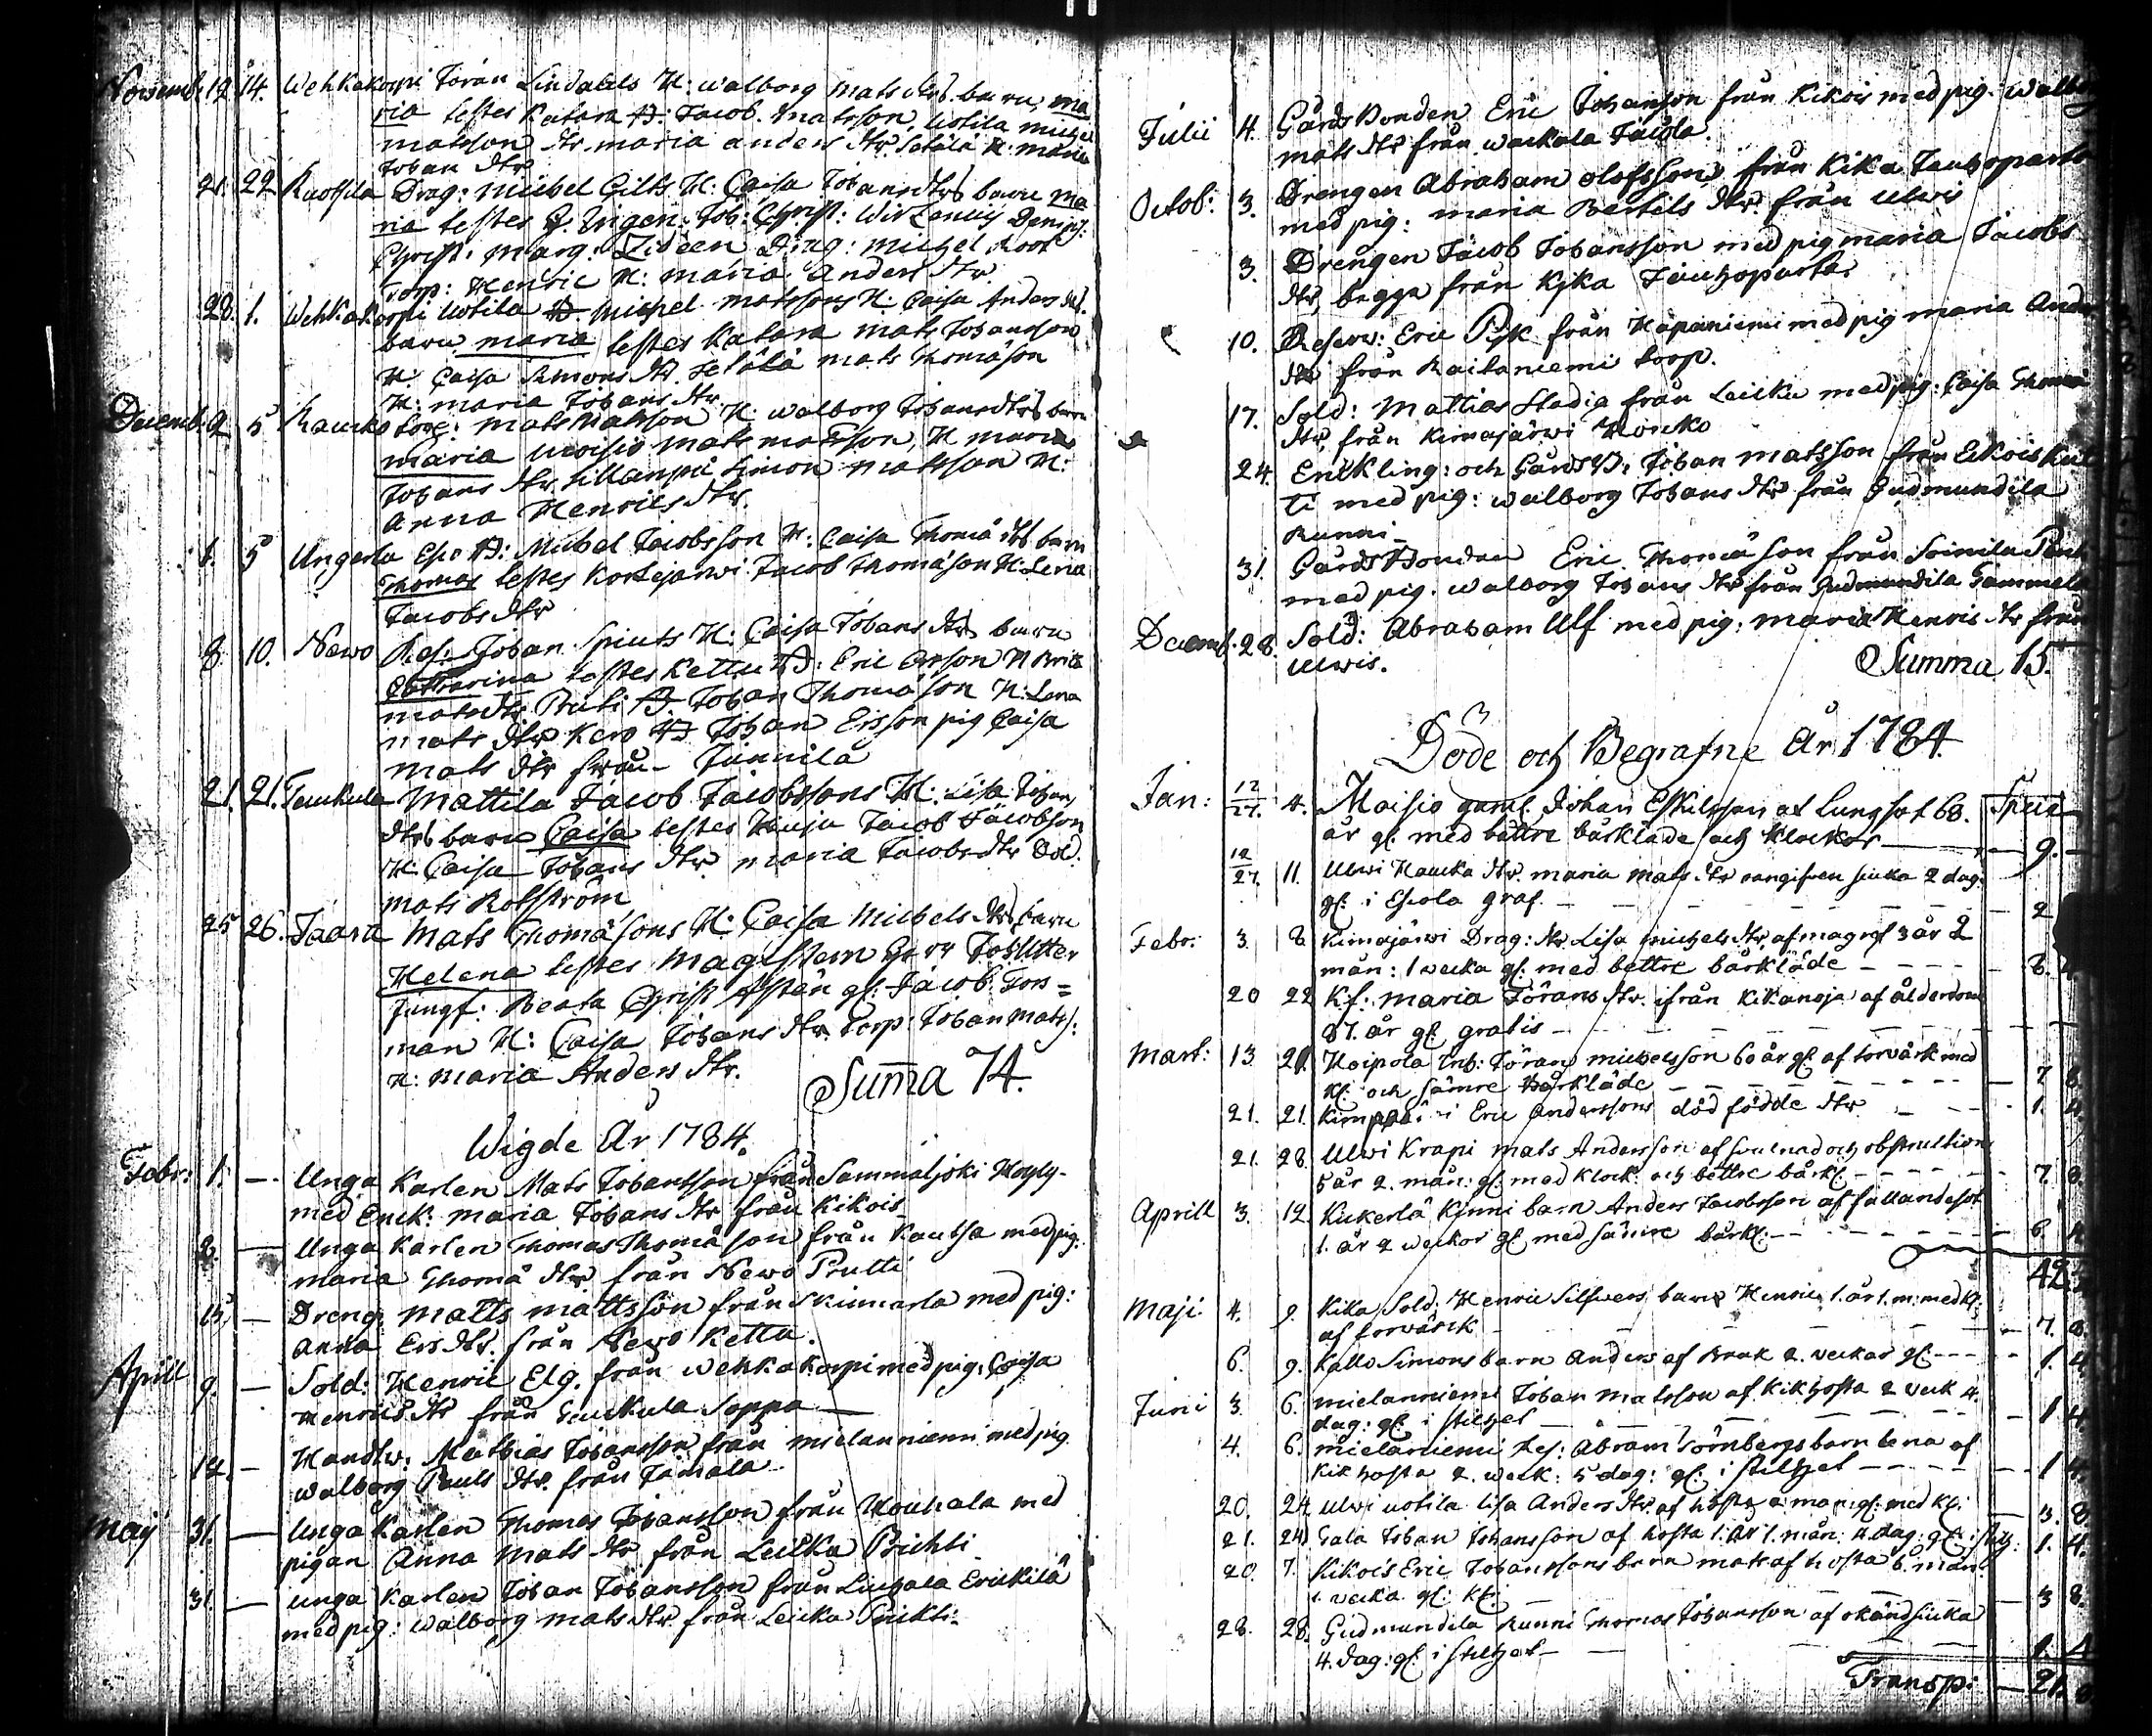 Novemb. 12 14. Wehkakorpi Jöran Lindahls H: walborg mats dtrs barn ma
ria testes Katara B: Jacob matsson Uotila michel
matsson dtr maria anders dtr Sätälä H: maria
Johan dtr
21. 22 Ruotsila Drag: Michel Gilts H: Caisa Johansdtrs barn ma
ria testes Joh: Christ: Demois:
Christ: Marg: Lideen Drag: Michel Root
Torp: Henric H: maria Anders dtr
28. 1. Wehkakorpi Uotila B Michel matssons H: Caisa Anders dtrs
barn maria testes Katara mats Johansson
H: Caisa Simons dtr Setälä mats Thomäson
H: maria Johans dtr
Decemb. 2 5 mats Matsson H: walborg Johansdtrs barn
maria mats matsson, H maria
Johans dtr Sillanpää Simon matsson H:
Anna Henrics dtr.
1. 5 Ungerla Espo B: Michel Jacobsson H: Caisa Thomä dtrs barn
Thomas testes Kortejärwi Jacob Thomäson H: Lena
Jacobs dtr
8. 10. Newo Res: Johan Spints H: Caisa Johans dtrs barn
Catharina testes Kettu B: Eric Ersson H Brita
matsdtr Pruti B Johan Thomäson H: Lena
mats dtr Kero B Johan Ersson pig Caisa
mats dtr från Junnila
21. 21. Taukula Mattila Jacob Jacobssons H: Lisa Johans
dtrs barn Caisa testes Jacob Jacobson
H: Caisa Johans dtr maria Jacobsdtr Sol:
mats Rotström
25 26. Jaara Mats Thomäsons H: Caisa Michels dtrs barn
Helena testes magistern Joh Utter
Jungf: Beata Christ gf: Jacob Fors=
man H: Caisa Johans dtr Torp: Johan mats:
H: maria Anders dtr.
Suma 74.
Wigde År 1784.
Febr: 1. — Unga Karlen Mats Johansson från Sammaljoki
med Enck: maria Johans dtr från Kikois
8. — Unga Karlen Thomas Thomäson från Kautsa med pig.
maria Thomä dtr från Newo Prutti
15. — Dreng. Matts mattsson från Skinnarla med pig:
Anna Ers dtr. från Newo Kettu.
Aprill 9. — Sold: Henric Elg. från Wehkakorpi med pig: Caisa
Henrics dtr från Taukula Soppa
12. — Handtw: Mathias Johansson från mielanniemi med pig
walborg Pauls dtr. från Jamala
Maij 31. — Unga Karlen Thomas Johansson från Houhala med
pigan Anna Mats dtr från Leikka Prihti
31. — Unga Karlen Johan Johansson från Liuhala Erickilä
med pig: walborg matsdtr från Leika Prikti.
Julii 4. Gårds Bonden Eric Johanson från Kikois med pig. Walb
mats dtr från Waukala Jacola.
Octob: 3. Drengen Abraham olofsson från Kika
med pig: maria Bertils dtr från Ulwis
3. Drengen Jacob Johansson med pig maria Jacobs
dtr, begge från Kika
10. Reserv: Eric Pyk från Hapaniemi med pig maria Ander
dtr från Raitaniemi torp.
17. Sold: Mattias Stadig från Leikku med pig: Caisa Thomä
dtr från Kimajärwi
24. Enckling: och Gårds B: Johan matsson från Eikois
ti med pig: walborg Johans dtr från Gudmundila
Runni
31. Gårds Bonden Eric Thomäson från Soinila
med pig. walborg Johans dtr från Gudmundila Gammela
Decemb. 28. Sold: Abraham Ulf med pig: maria Henrics dtr från
Ulwis.
Summa 15.
Döde och Begrafne År 1784
Jan: 12/27. 4. Moisio gaml. Johan Eskilsson af Lungsot 68. Speci
år gl: med bättre bårkläde och Klockor — 9.
12/27. 11. Ulwi Hauka dtr. maria mats dtr oangifven siuka 2 dag.
gl: i Espola graf. — 2
Febr: 3. 8 Kimajärwi Drag: dtr Lisa michels dtr, af mag ref 3 år 2
mån: 1 wecka gl: med bettre bårkläde — 6.
20 22 Kf: maria Jörans dtr ifrån Kikanoja af ålderdom
87. år gl: gratis —
Mart: 13 21. Hoipola Inh: Jöran michelsson 60 år gl: af torvärk med
Kl: och sämre bårkläde — 7 8.
21. 21. Eric Anderssons död födde dtr — 1. 4.
21. 28. Ulwi Krapi mats Andersson af svulnad och obstruktion
5 år 2. mån: gl: med Klock: och bettre bårkl: — 7. 8.
Aprill 3. 12. Kukerlä Kynni barn Anders Jacobsson af fallandesot
1. år 2 weckor gl: med sämre bårkl: — 6.
42.
Maji 4. 9. Kika Sold: Henric Silfwers barn Henric 1. år 1. m: med Kl:
af torvärck — 7. 8.
6. 9. Kallo Simons barn Anders af Brak 2. veckor gl: — 1. 4.
Juni 3. 6. mielanniemi Johan Matsson af Kikhosta 2 veck 4.
dag: gl: i stilhet — 1 4.
4. 6. mielaniemi Res: Abram Törnbergs barn Lena af
Kikhosta 2. weck: 5 dag: gl: i stilhet — 1 4.
20. 24 Ulwi uotila Lisa Anders dtr af hosta 2 mån: gl: med Kl: — 3. 8.
21. 24 Gala Johan Johansson af hosta 1. år 1. mån: 4. dag: gl: i stilh: 1. 4.
20. 7. Kikois Eric Johanssons barn mats af hosta 6 mån:
1. wecka gl: Kl: — 3 8.
28. 28. Gudmundila Runni Thomas Johansson af okänd siuka
4. dag: gl: i stilhet — 1. 4
Transp: — 21.